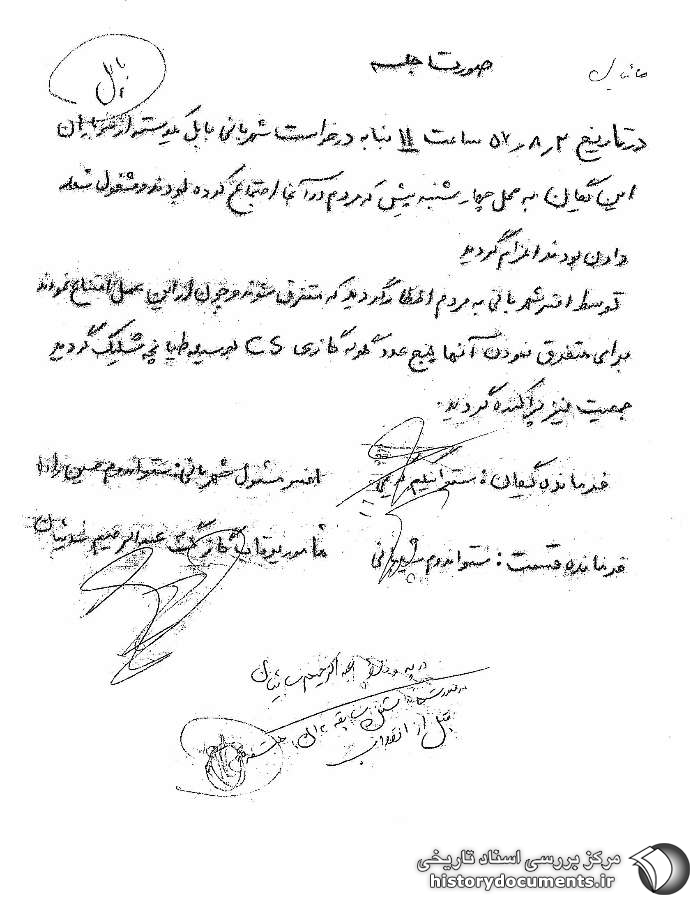 صورت جلسه
بابل
در تاریخ ۲ر۸ر۵۷ ساعت ۱۱ بنا به درخواست شهربانی بابل یک دسته از سربازان
این گروهان به محل چهارشنبه پیش که مردم در آنجا اجتماع کرده بودند و مشغول شعار
دادن بودند اعزام گردید
توسط افسر شهربانی به مردم اخطار گردید که متفرق شوند و چون از این عمل امتناع نمودند
برای متفرق نمودن آنها پنج عدد گلوله گازی CS بوسیله طپانچه شلیک گردید
جمعیت نیز پراکنده گردید.
فرمانده گروهان : ستوانیکم
افسر مسئول شهربانی: ستواندوم حسین
فرمانده قسمت : ستواندوم
مامور پرتاب گاز عبدالرحیم
قبل از انقلاب
مرکز بررسی اسناد تاریخی
historydocuments.ir